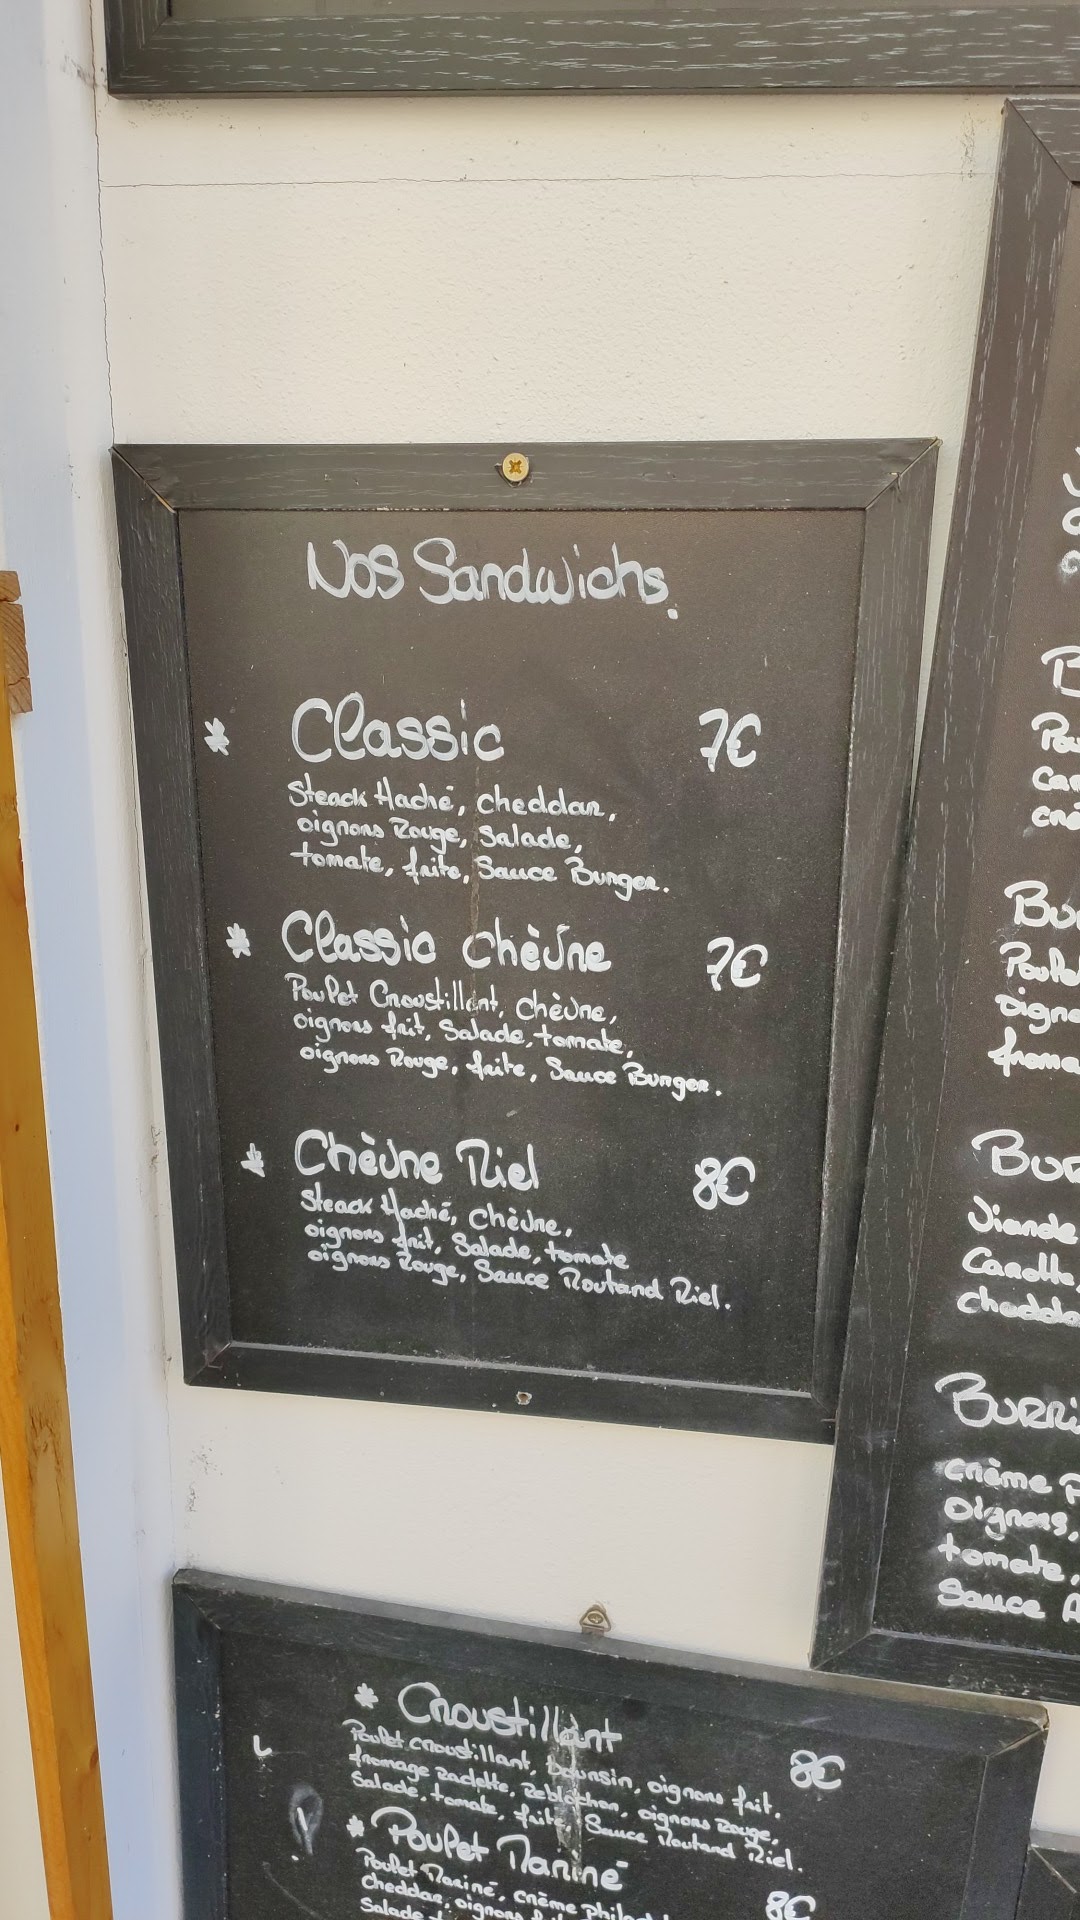 Nos Sandwichs.
* Classic 7€
Steack Haché, cheddar,
oignons Rouge, Salade,
tomate, frite, Sauce Burger.
* Classic chèvre 7€
Poulet Croustillant, chèvre,
oignons frit, Salade, tomate,
oignons Rouge, frite, Sauce Burger.
* Chèvre Miel 8€
Steack Haché, chèvre,
oignons frit, Salade, tomate
oignons Rouge, Sauce Moutard Miel.
* Croustillant 8€
Poulet croustillant, boursin, oignons frit.
fromage Raclette, Reblochon, oignons Rouge,
Salade, tomate, frite, Sauce Moutard Miel.
* Poulet Mariné 8€
Poulet Mariné, crème
cheddar, oignons
Salade
Viande
Carotte,
chedda
Burri
crème
oignons,
tomate,
Sauce